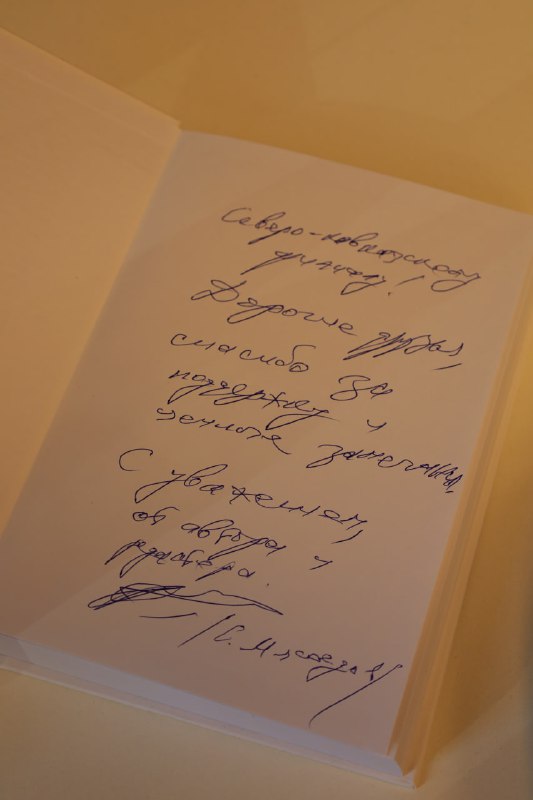 Северо-Кавказскому
филиалу!
Дорогие друзья,
спасибо за
поддержку и
ценные замечания.
С уважением,
от автора и
редактора.
/С.